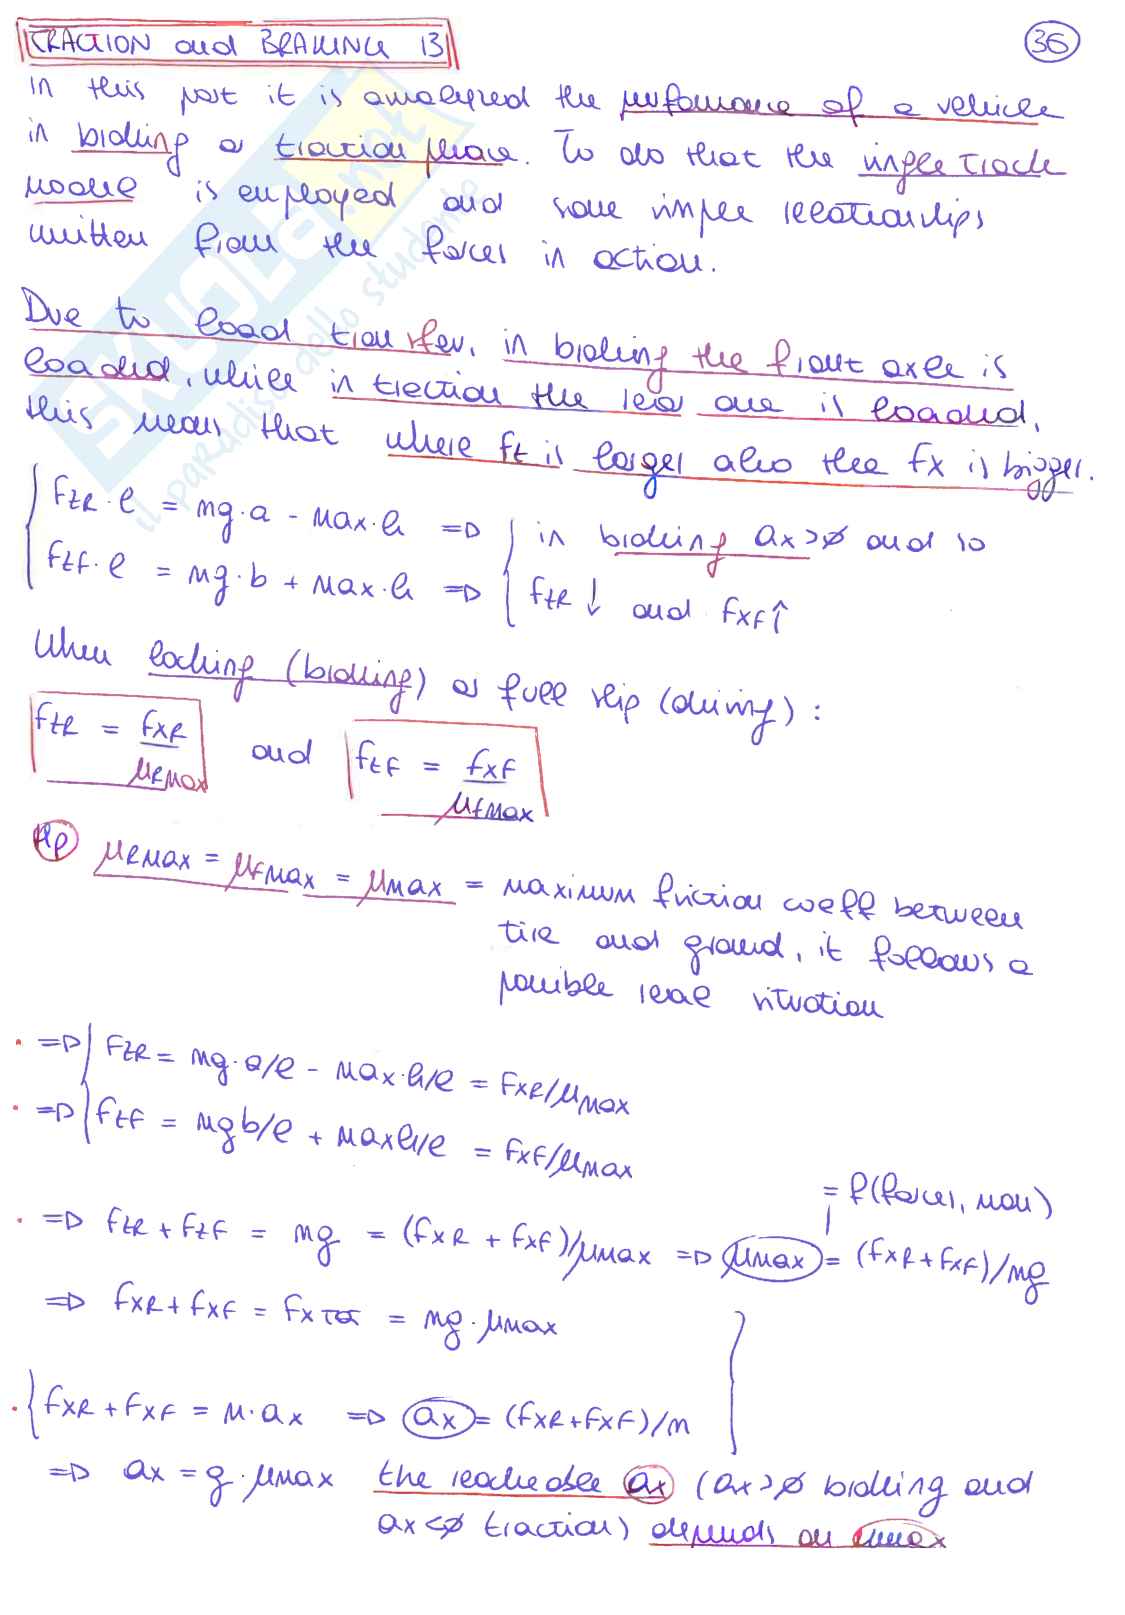 TRACTION and BRAKING 13
36
In this part it is analyzed the performance of a vehicle
in braking or traction phase. To do that the single track
model is employed and some simple relationships
written from the forces in action.
Due to load transfer, in braking the front axle is
loaded, while in traction the rear one is loaded,
this means that where Fz is larger also the Fx is bigger.
FzR · l = mg · a - max · h => in braking ax>ø and so
FzF · l = mg · b + max · h => FzR ↓ and FxF ↑
When locking (braking) or full slip (driving) :
FzR = FxR / μRMAX and FzF = FxF / μFMAX
Hp μRMAX = μFMAX = μMAX = maximum friction coeff between
tire and ground, it follows a
possible real situation
=> FzR = mg · a/l - max · h/l = FxR/μMAX
=> FzF = mg b/l + max h/l = FxF/μMAX
= f(forces, mou)
=> FzR + FzF = mg = (FxR + FxF)/μmax => μmax = (FxR + FxF)/mg
=> FxR + FxF = FxTOT = mg · μmax
FxR + FxF = m · ax => ax = (FxR + FxF)/m
=> ax = g · μmax the reachable ax (ax>ø braking and
ax<ø traction) depends on μmax
SKUOLA.net
il paradiso dello studente